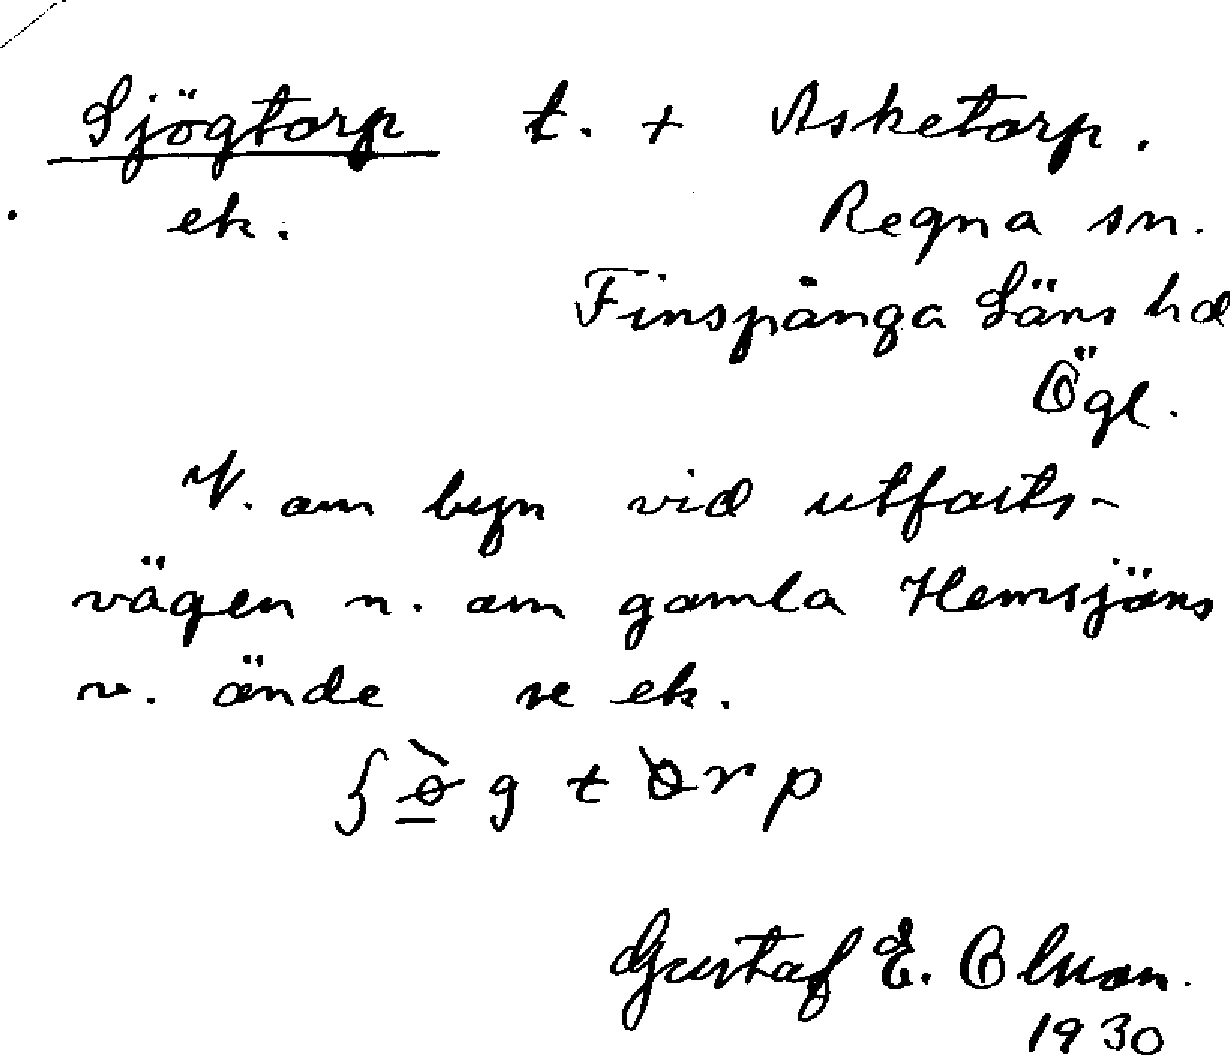 Sjögtorp t. + Asketorp.
ek. Regna sn.
Finspånga Läns hd
Ögl.
N. om byn vid utfarts-
vägen n. om gamla Hemsjöns
v. ände se ek.
Gustaf E. Olsson.
1930